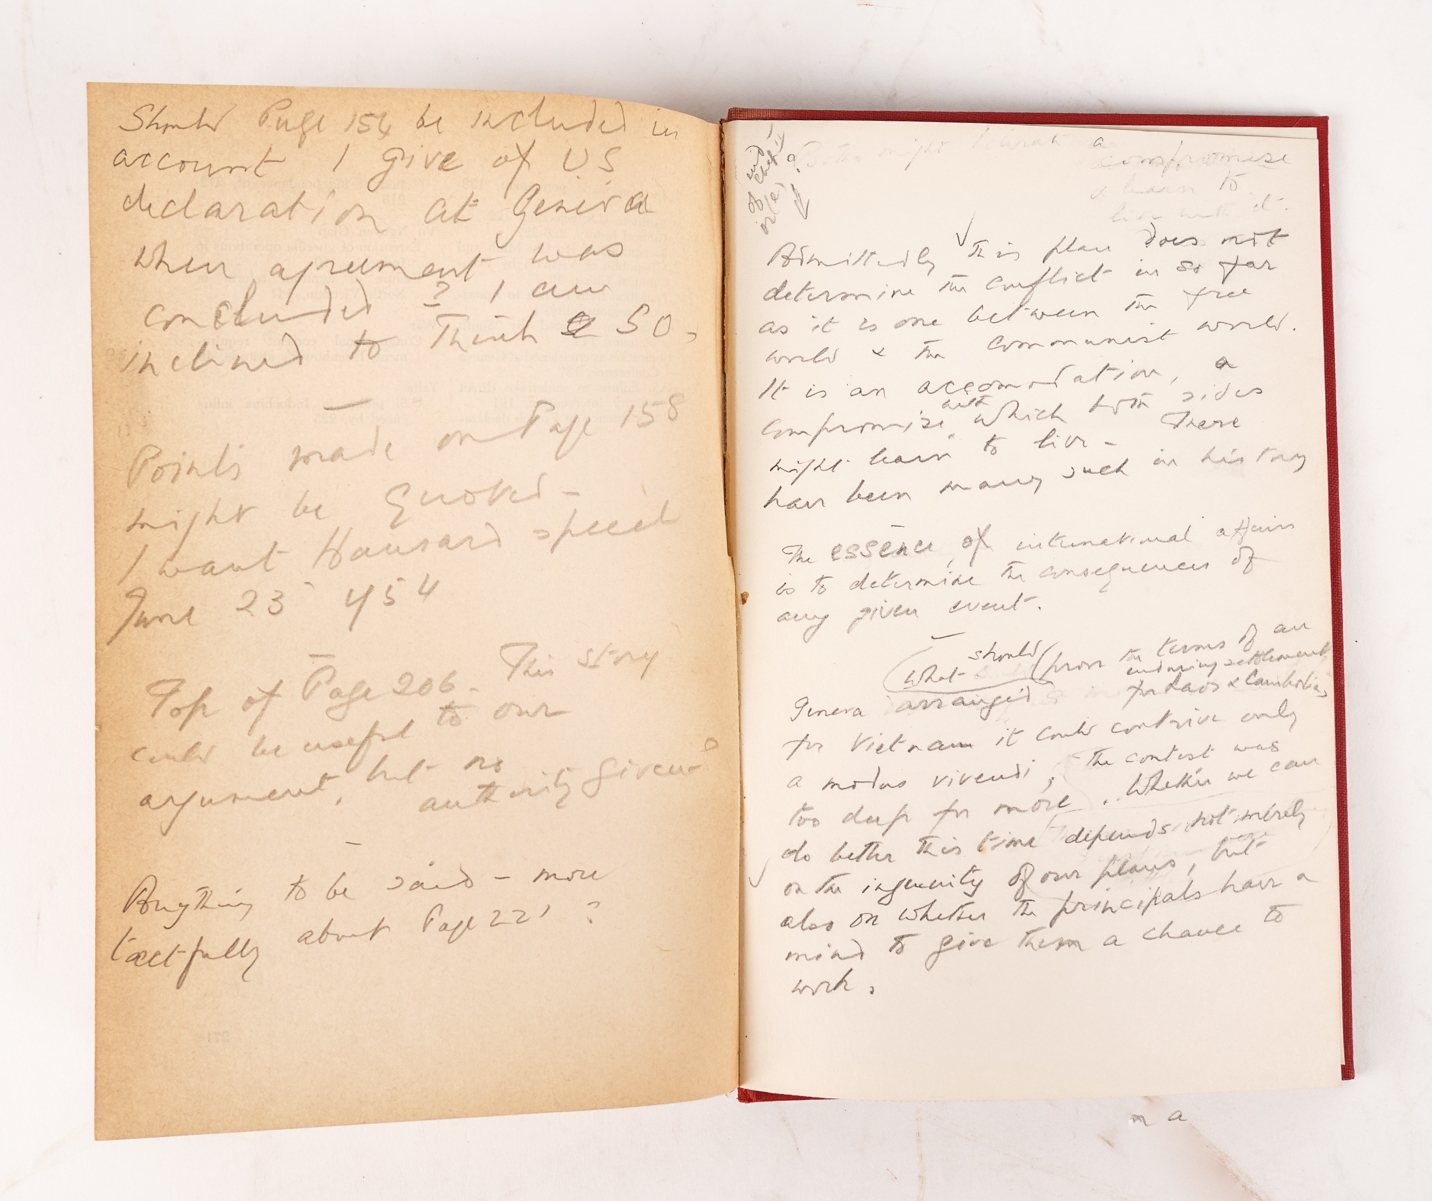 Should Page 154 be included in
account I give of U.S
declaration at Geneva
when agreement was
concluded ? I am
inclined to think so.
—
Points made on Page 158
might be quoted –
I want Hansard speech
June 23 1954
—
Top of Page 206. This story
could be useful to our
argument, but no
authority given
—
Anything to be said – more
tactfully about Page 221 ?
might a
compromise
& learn to
live with it.
Admittedly this plan does not
determine the conflict in so far
as it is one between the free
world & the Communist world.
It is an accomodation, a
compromise with which both sides
might learn to live – There
have been many such in history
The essence of international affairs
is to determine the consequences of
any given event.
—
What should (from the terms of an
enduring settlement
for Laos & Cambodia,
Geneva arranged
for Vietnam it could contrive only
a modus vivendi, the contest was
too deep for more. Whether we can
do better this time depends not merely
on the ingenuity of our plans, but
also on whether the principals have a
mind to give them a chance to
work.